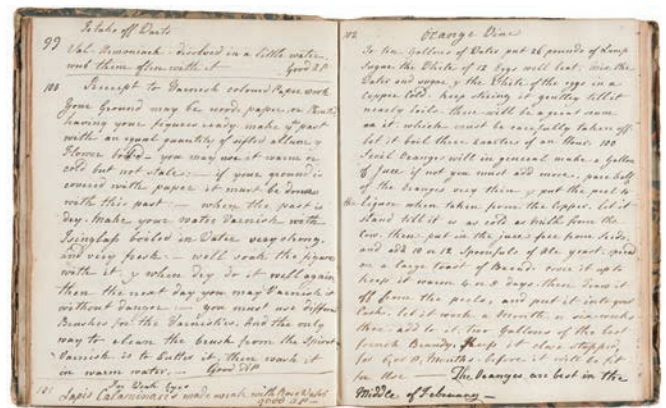 To take off Warts
99
Sal. Armoniack dissolved in a little water.
rub them often with it Good AP
100 Receipt to Varnish coloured Paper work
Your Ground may be wood, paper, or
having your figures ready make yr past
with an equal quantity of sifted allum y
Flower boiled — you may use it warm or
cold but not stale: — if your ground is
covered with paper it must be done
with this past: — when the past is
dry. make your water Varnish with
Isinglass boiled in Water very strong,
and very fresh. — well soak the figures
with it, y when dry do it well again
then the next day you may Varnish it
without danger — you must use different
Brushes for the Varnishes. And the only
way to clean the brush from the Spirit
Varnish is to Butter it, then wash it
in warm water. — Good AP
101 For Weak Eyes
Lapis Calaminaris made weak with Rose Water
good AP —
102 Orange Wine
To ten Gallons of Water put 26 pounds of Lump
Sugar the White of 12 Eggs well beat, mix the
Water and sugar, y the White of the eggs in a
Copper Cold. keep stiring it gently till it
nearly boils. there will be a great scum
on it. which must be carefully taken off.
let it boil three quarters of an Hour. 100
Sevil Oranges will in general make a Gallon
of juice if not you must add more. pare half
of the Oranges very thin y put the peel to
the Liquor when taken from the Copper. let it
stand till it is as cold as milk from the
Cow. then put in the juice free from Seeds.
and add 10 or 12 Spoonfuls of Ale yeast.
on a large toast of Bread. cover it up to
keep it warm 4 or 5 days. then draw it
off from the peels, and put it into your
Cask, let it work a Month, or six weeks
then add to it, two Gallons of the best
french Brandy. Keep it close stopped
for 6 or 8 Months. before it will be fit
for Use — The Oranges are best in the
Middle of February —